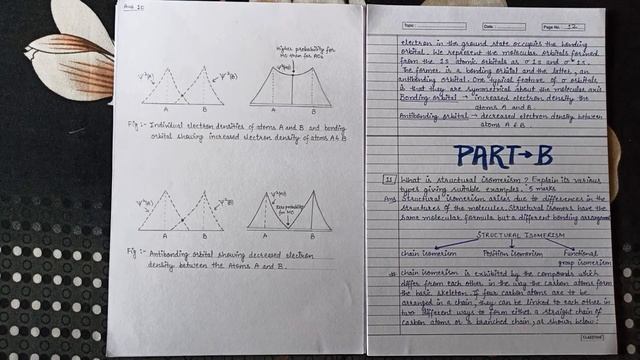 Ans 10
Higher probability for
MO than for AOs
ψ²(MO)
ψ²(A)
ψ²(B)
A
B
A
B
Fig:- Individual electron densities of atoms A and B and bonding
orbital showing increased electron density of atoms A & B
ψ²(A)
ψ²(B)
ψ²(MO)
Zero probability
for MO
A
B
A
B
Fig:- Antibonding orbital showing decreased electron
density between the Atoms A and B.
Topic:
Date:
Page No. 12
electron in the ground state occupies the bonding
orbital. We represent the molecular orbitals formed
from the 1S atomic orbitals as σ 1S and σ* 1S.
The former is a bonding orbital and the latter, an
antibonding orbital. One typical feature of σ orbitals
is that they are symmetrical about the molecular axis.
Bonding orbital → increased electron density the
atoms A and B.
Antibonding orbital → decreased electron density between
atoms A & B.
PART→B
11 What is structural isomerism? Explain its various
types giving suitable examples. 5 marks
Ans Structural isomerism arises due to differences in the
structures of the molecular. Structural isomers have the
same molecular formula but a different bonding arrangement
STRUCTURAL ISOMERISM
Chain isomerism Position isomerism Functional
group isomerism
* Chain isomerism is exhibited by the compounds which
differ from each other in the way the carbon atoms form
the basic skeleton. If four carbon atoms are to be
arranged in a chain, they can be linked to each other in
two different ways to form either a straight chain of
carbon atoms or a branched chain, as shown below:
CLASSTIME